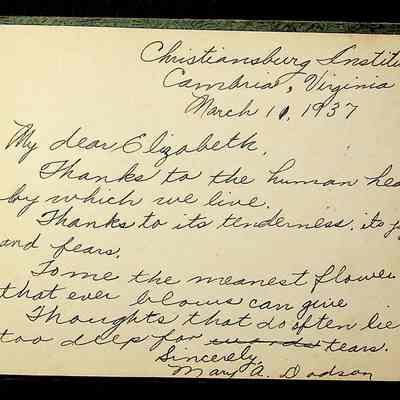 Christiansburg Institu
Cambria, Virginia
March 11, 1937
My dear Elizabeth,
Thanks to the human hea
by which we live.
Thanks to its tenderness, its jo
and fears.
To me the meanest flower
that ever blows can give
Thoughts that do often lie
too deep for words tears.
Sincerely,
Mary A. Dodson